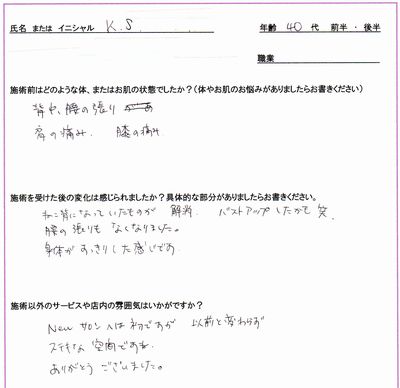 氏名 または イニシャル K.S. 年齢 40 代 前半 ・ 後半
職業
施術前はどのような体、またはお肌の状態でしたか？(体やお肌のお悩みがありましたらお書きください)
背中、腰の張り
肩の痛み、 膝の痛み
施術を受けた後の変化は感じられましたか？具体的な部分がありましたらお書きください。
ねこ背になっていたものが 解消、 バストアップしたかも 笑
腰の張りも なくなりました。
身体が すっきりした感じです。
施術以外のサービスや店内の雰囲気はいかがですか？
New サロンへは初ですが 以前と変わらず
ステキな 空間ですね
ありがとう ございました。